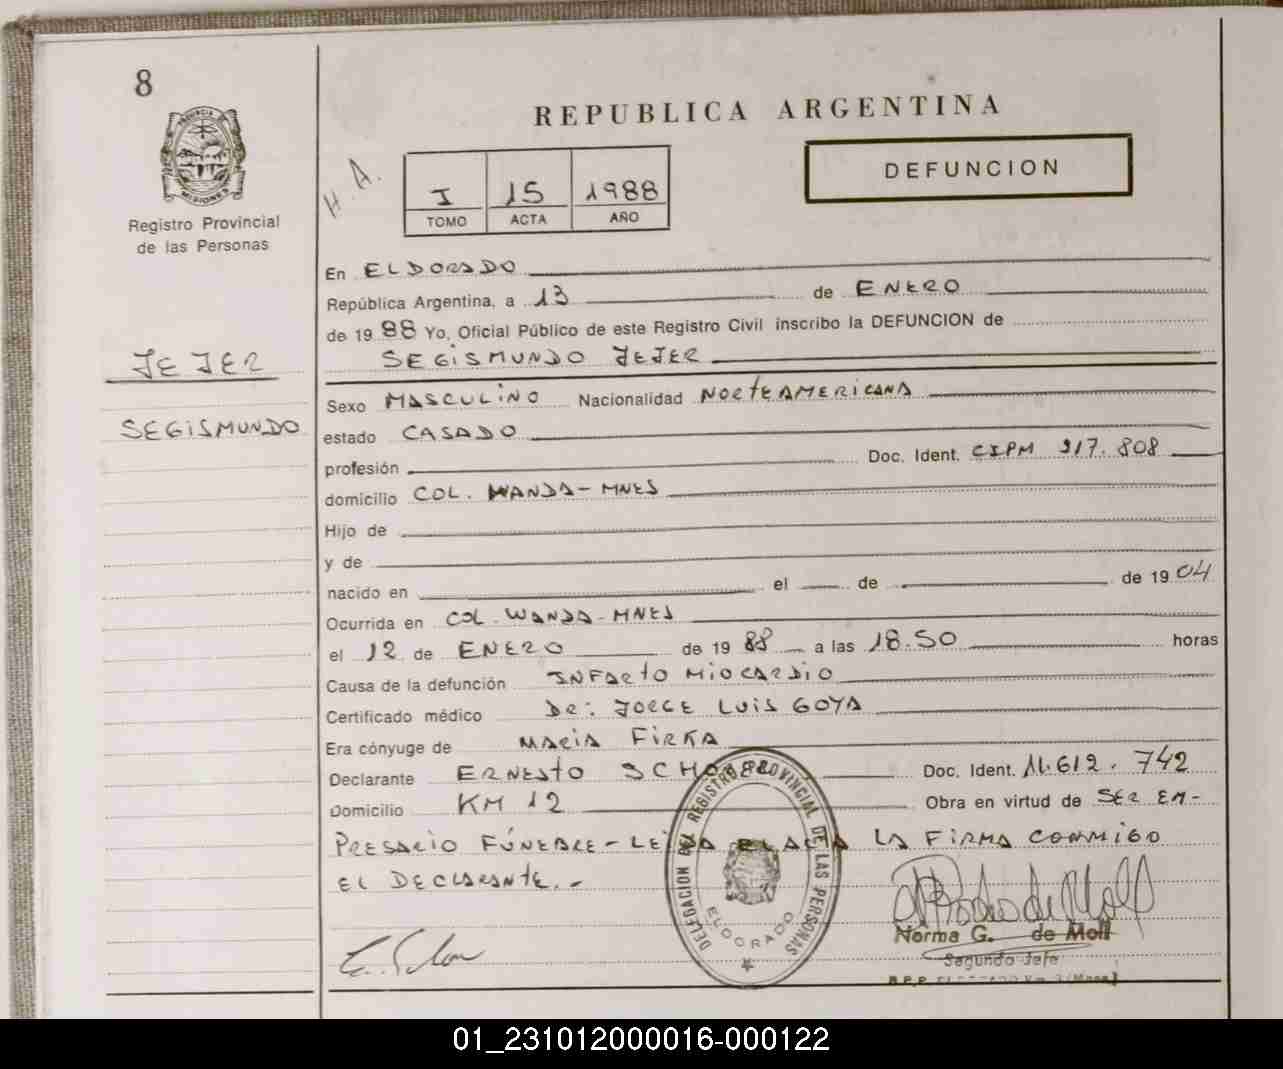 8
PROVINCIA DE
MISIONES
Registro Provincial
de las Personas
H. A.
REPUBLICA ARGENTINA
I 15 1988
TOMO ACTA AÑO
DEFUNCION
En ELDORADO
República Argentina, a 13 de ENERO
de 1988 Yo, Oficial Público de este Registro Civil inscribo la DEFUNCION de
SEGISMUNDO JEJER
JEJER
SEGISMUNDO
Sexo MASCULINO Nacionalidad NORTEAMERICANA
estado CASADO
profesión Doc. Ident. CIPM 317.808
domicilio COL. WANDA-MNES
Hijo de
y de
nacido en el de de 1904
Ocurrida en COL. WANDA-MNES
el 12 de ENERO de 1988 a las 18.50 horas
Causa de la defunción INFARTO MIOCARDIO
Certificado médico DR: JORGE LUIS GOYA
Era cónyuge de MARIA FIRKA
Declarante ERNESTO Doc. Ident. 11.612.742
Domicilio KM 12 Obra en virtud de SER EM-
PRESARIO FÚNEBRE-LEIDA EL ACTA LA FIRMA CONMIGO
EL DECLARANTE.-
DELEGACION DEL REGISTRO PROVINCIAL DE LAS PERSONAS
ELDORADO
Norma G. de Moll
Segundo Jefe
01_231012000016-000122